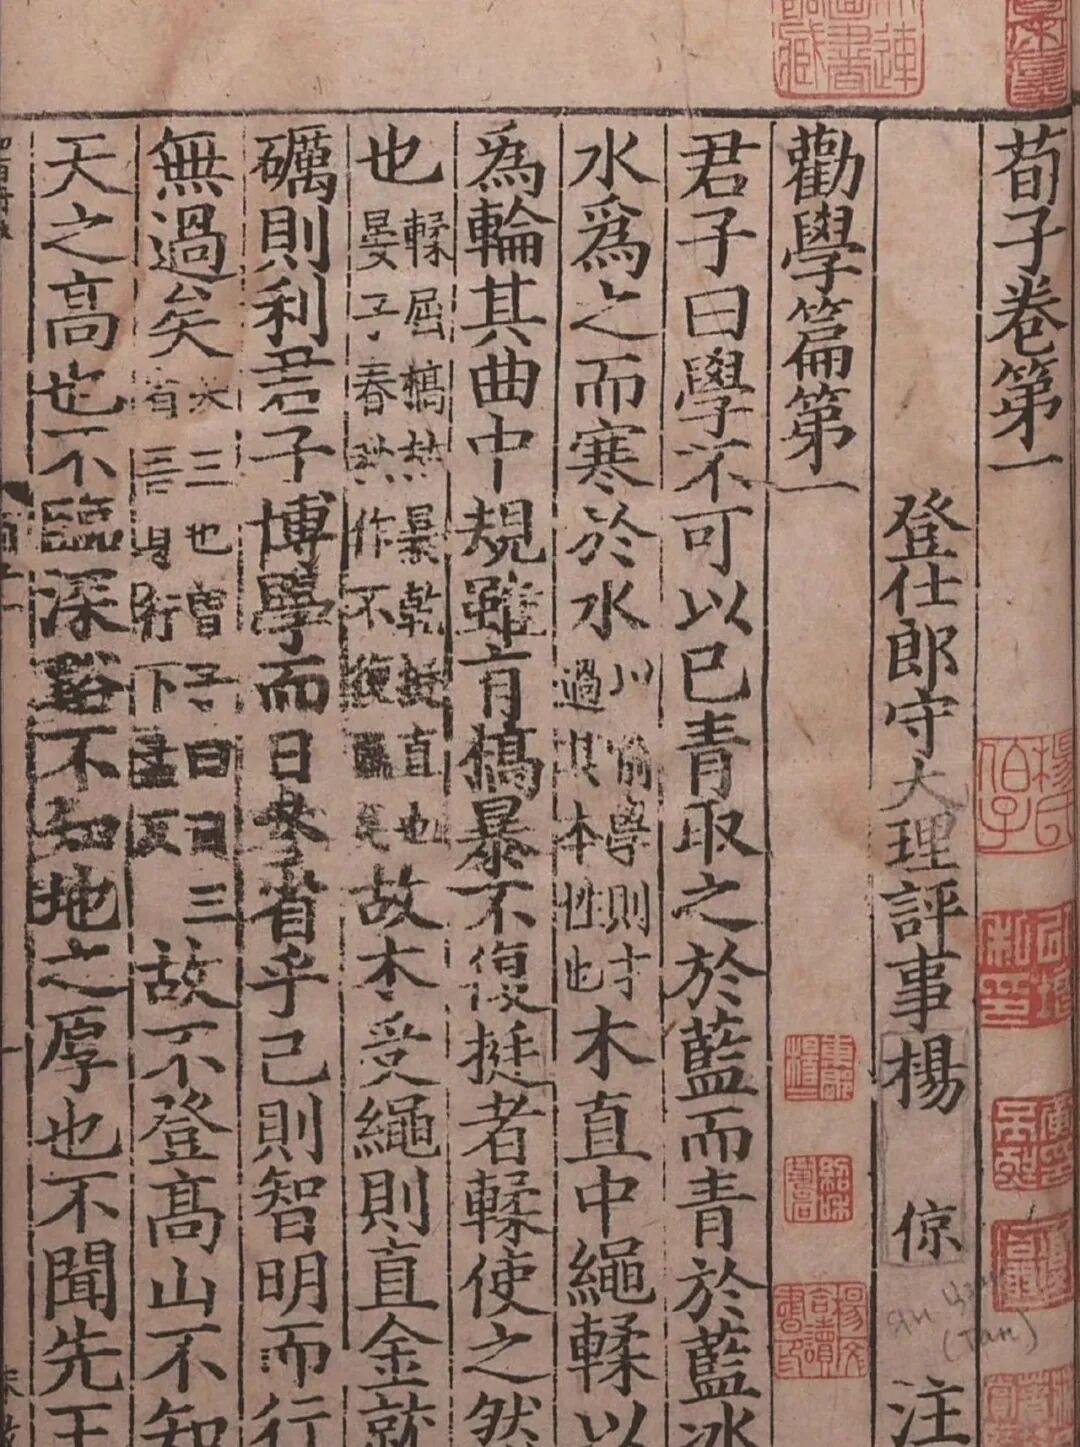 荀子卷第一
登仕郎守大理評事楊 倞 注
勸學篇第一
君子曰學不可以已青取之於藍而青於藍冰
水爲之而寒於水以喻學則才過其本性也木直中繩輮以
爲輪其曲中規雖有槁暴不復挺者輮使之然
也輮屈槁枯暴乾挺直也晏子春秋作不復贏矣故木受繩則直金就
礪則利君子博學而日參省乎己則智明而行
無過矣參三也曾子曰日三省吾身行下孟反故不登高山不知
天之高也不臨深谿不知地之厚也不聞先王